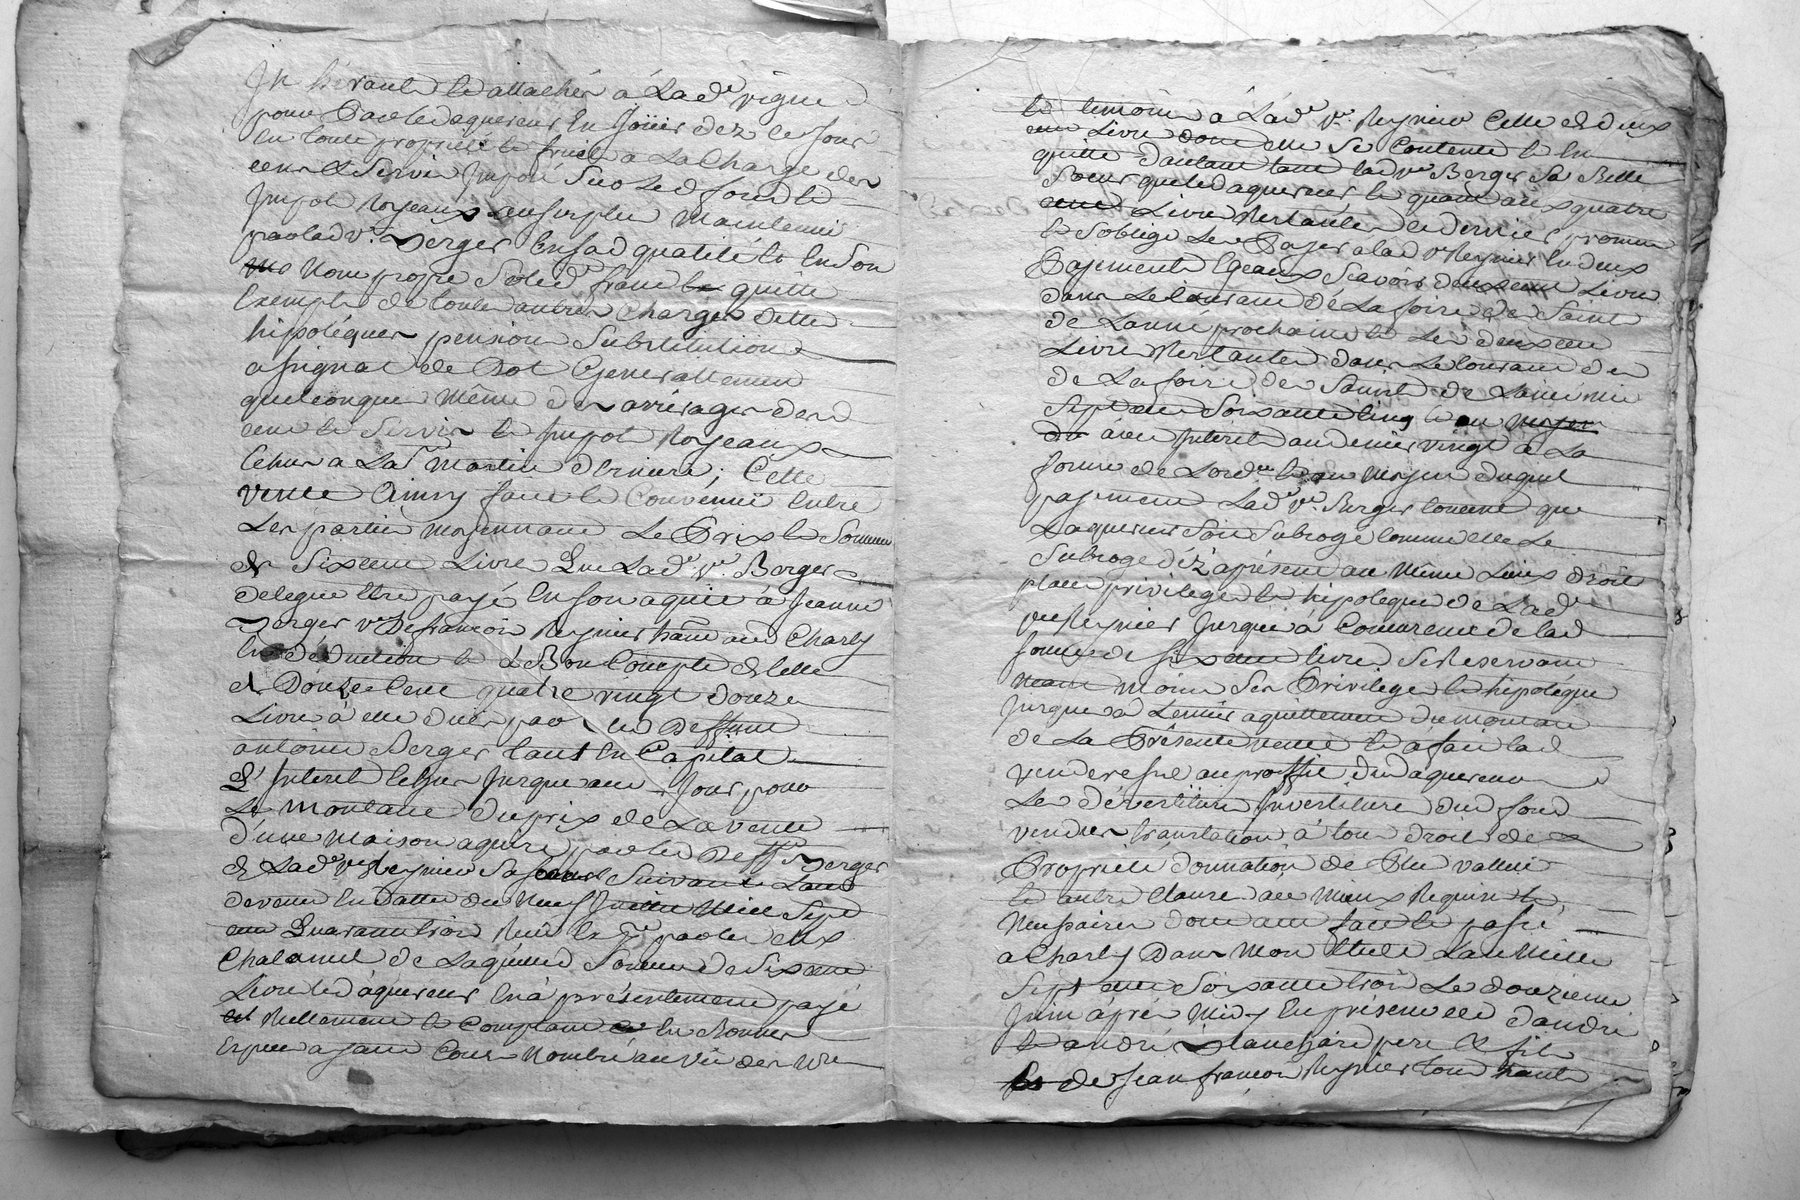 Inhérants et attachés à Lad.e vigne
pour Par led aquereur En Joüir dez ce Jour
en toute propriété et fruits a La Charge des
cens & Servis Imposé Sur Led fond et
Impot Royeaux
par lad v.e Berger En sad qualité et En Son
Nom propre Soled franc quitte
Exempte de toutes autres Charges Dette
hipotéques pension Substitution
asignat de Dot Generallement
quelconque Même des arrérages desd
cens et Servis et Impot Royeaux
Echus a La S.t Martin derniere; Cette
vente Ainsy faite et Convenüe Entre
Les parties moyennant Le Prix et Somme
de Six cent Livre Que Lad.e v.e Berger
delegue Etre payé En son aquit à Jeanne
Berger v.e De françois Reynier aud Charly
En déduction et à Bon Compte de Celle
de Douze Cent quatre vingt douze
Livre à elle dües par led Deffunt
antoine Berger tant En Capital
qu' Interet Echus Jusque au Jour pour
Le Montant du prix de La vente
d'une maison aquise par led Deff.t Berger
de Lad.e v.e Reynier Sa Suivant L'acte
de vente En datte du Neuf Juillet Mil Sept
cent Quarante trois Reçu
Chalamel de Laquelle d Somme de Six cent
Livre led aquereur En à présentement payé
Réellement et Comptant En Bonnes
Espece ayant Cours Nombré au Vü des Nre
et temoins a Lad.e v.e Reynier Celle de deux
cent Livre dont elle Se Contente et En
quitte d'autant tant lad v.e Berger Sa Belle
Soeur que led aquereur et quant aux quatre
cent Livre Restante ce dernier promet
et Soblige de Les Payer a lad v.e Reynier En deux
Payements Egeaux Scavoir deux cent Livre
dans Le Courant de La foire des Saints
de Lanné prochaine et Les deux cent
Livre Restante dans Le Courant de
de La foire des Saints de Lanné mil
Sept cent Soixante Cinq et au moyen
du avec Interets au denier vingt a La
forme de Lord.ce et au Moyen duquel
payement Lad.e v.e Berger Consent que
L'aquereur Soit Subrogé Comme elle Le
Subroge déz à présent au Même Lieux droit
place privilege et hipoteque de Lad.e
v.e Reynier Jusqu'à Concurence de lad
Somme de Six cent livre Se Reservant
Neant moins Ses Privilege et hipotéque
Jusque a L'entier aquittement du montant
de La Présente vente et à fait lad
venderesse au proffit dud aquereur
Les dévestiture Investiture dud fond
vendus translation de tous droits de
Propriété donnation de Plus vallue
et autre Clause au Mieux Requise et
Nessaire dont acte fait et passé
a Charly Dans Mon Etude L'an Mille
Sept cent Soixante trois Le douzieme
Juin après Midy En présence de d'andré
et andré Blanchard pere & fils
de Jean françois Reynier tous